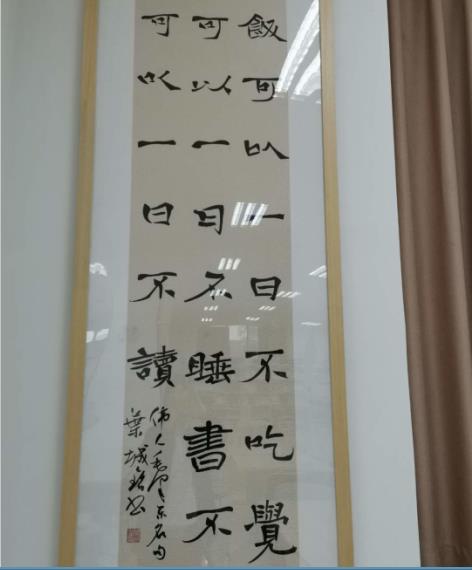 飯可以一日不吃覺
可以一日不睡書不
可以一日不讀
伟人毛泽东名句
葉城书